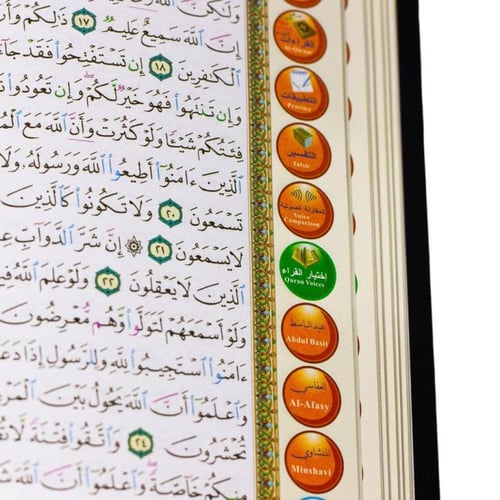 وَلَٰكِنَّ
إِنَّ ٱللَّهَ سَمِيعٌ عَلِيمٌ ١٧ ذَٰلِكُمْ وَأَنَّ
ٱلْكَٰفِرِينَ ١٨ إِن تَسْتَفْتِحُوا۟ فَقَدْ
وَإِن تَنتَهُوا۟ فَهُوَ خَيْرٌ لَّكُمْ وَإِن تَعُودُوا۟
فِئَتُكُمْ شَيْـًٔا وَلَوْ كَثُرَتْ وَأَنَّ ٱللَّهَ مَعَ
ٱلَّذِينَ ءَامَنُوٓا۟ أَطِيعُوا۟ ٱللَّهَ وَرَسُولَهُۥ وَلَا
تَسْمَعُونَ ٢٠ وَلَا تَكُونُوا۟ كَٱلَّذِينَ
لَا يَسْمَعُونَ ٢١ ۞ إِنَّ شَرَّ ٱلدَّوَآبِّ
ٱلَّذِينَ لَا يَعْقِلُونَ ٢٢ وَلَوْ عَلِمَ ٱللَّهُ
وَلَوْ أَسْمَعَهُمْ لَتَوَلَّوا۟ وَّهُم مُّعْرِضُونَ
ءَامَنُوا۟ ٱسْتَجِيبُوا۟ لِلَّهِ وَلِلرَّسُولِ إِذَا
وَٱعْلَمُوٓا۟ أَنَّ ٱللَّهَ يَحُولُ بَيْنَ
تُحْشَرُونَ ٢٤ وَٱتَّقُوا۟ فِتْنَةً
مِنكُمْ خَآصَّةً وَٱعْلَمُوٓا۟ أَنَّ ٱللَّهَ
القراءات
Al-Quran
التطبيقات
Practice
التفسير
Tafsir
المقارنة الصوتية
Voice Comparison
اختيار القراء
Quran Voices
عبد الباسط
Abdul Basit
العفاسي
Al-Afasy
المنشاوي
Minshavi